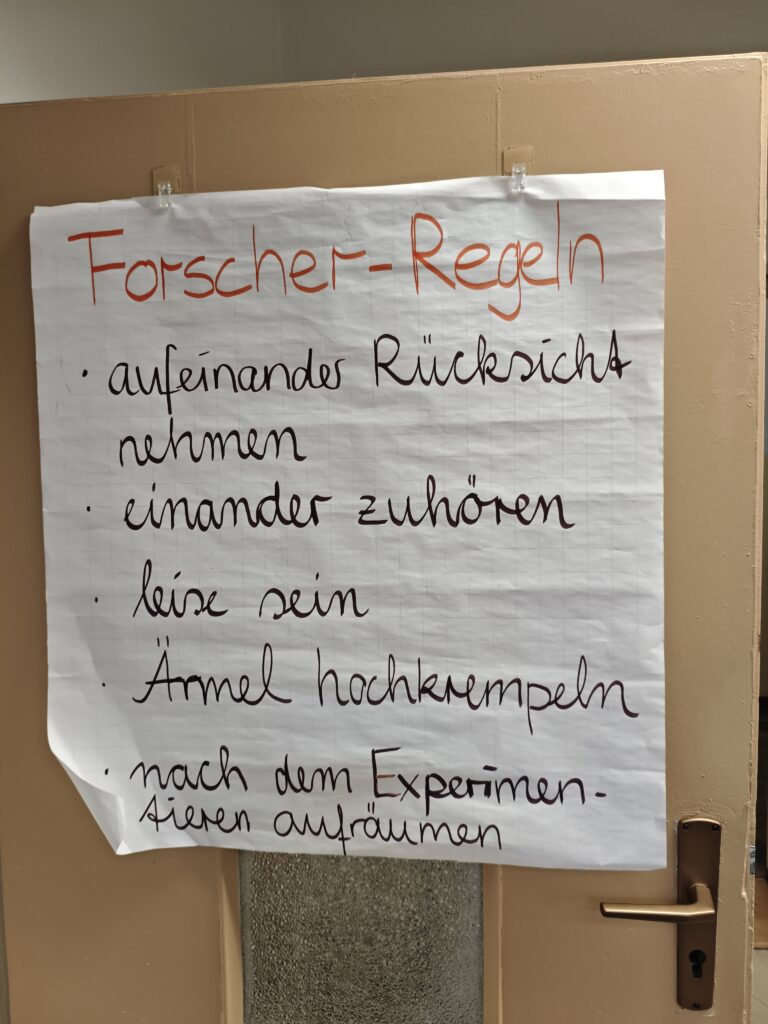 Forscher-Regeln
· aufeinander Rücksicht
nehmen
· einander zuhören
· leise sein
· Ärmel hochkrempeln
· nach dem Experimen-
tieren aufräumen